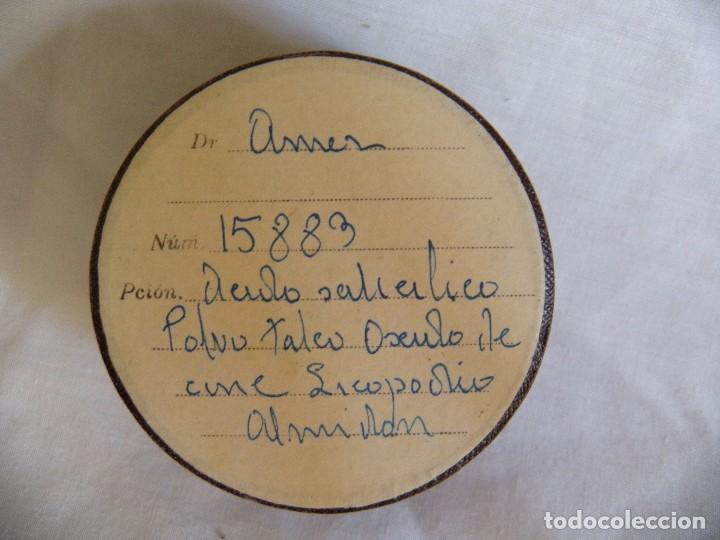 Dr Amer
Núm 15883
Pción. Acido salicilico
Polvo talco Oxido de
cinc Licopodio
Almidón
todocoleccion.net